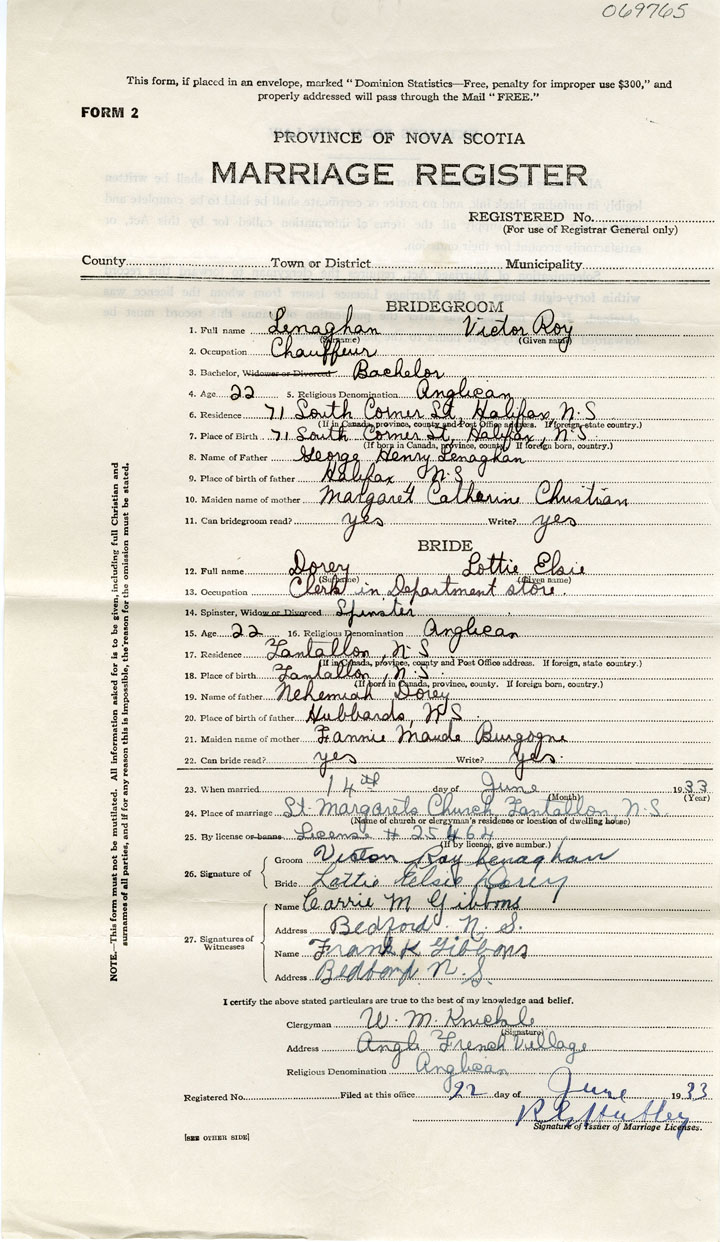 069765
This form, if placed in an envelope, marked "Dominion Statistics—Free, penalty for improper use $300," and
properly addressed will pass through the Mail "FREE."
FORM 2
PROVINCE OF NOVA SCOTIA
MARRIAGE REGISTER
REGISTERED No.
(For use of Registrar General only)
County Town or District Municipality
BRIDEGROOM
1. Full name Lenaghan Victor Roy
(Surname) (Given name)
2. Occupation Chauffeur
3. Bachelor, Widower or Divorced Bachelor
4. Age 22 5. Religious Denomination Anglican
6. Residence 71 South Corner St, Halifax, N.S
(If in Canada, province, county and Post Office address. If foreign, state country.)
7. Place of Birth 71 South Corner St, Halifax, N.S.
(If born in Canada, province, county. If foreign born, country.)
8. Name of Father George Henry Lenaghan
9. Place of birth of father Halifax N.S
10. Maiden name of mother Margaret Catherine Christian
11. Can bridegroom read? yes Write? yes
BRIDE
12. Full name Dorey Lottie Elsie
(Surname) (Given name)
13. Occupation Clerk in Department store.
14. Spinster, Widow or Divorced Spinster
15. Age 22 16. Religious Denomination Anglican
17. Residence Tantallon, N.S
(If in Canada, province, county and Post Office address. If foreign, state country.)
18. Place of birth Tantallon, N.S.
(If born in Canada, province, county. If foreign born, country.)
19. Name of father Nehemiah Dorey
20. Place of birth of father Hubbards, N.S
21. Maiden name of mother Fannie Maude Burgogne
22. Can bride read? yes Write? yes.
23. When married 14th day of June 1933
(Month) (Year)
24. Place of marriage St Margarets Church Tantallon, N.S.
(Name of church or clergyman's residence or location of dwelling house)
25. By license or banns License # 25464
(If by licence, give number.)
26. Signature of
Groom Victor Roy Lenaghan
Bride Lottie Elsie Dorey
27. Signatures of Witnesses
Name Carrie M Gibbons
Address Bedford N.S.
Name Frank K Gibbons
Address Bedford N.S.
I certify the above stated particulars are true to the best of my knowledge and belief.
Clergyman W. M.
(Signature)
Address Angli French Village
Religious Denomination Anglican
Registered No. Filed at this office 22 day of June 1933
Signature of Issuer of Marriage Licenses.
[SEE OTHER SIDE]
NOTE.—This form must not be mutilated. All information asked for is to be given, including full Christian and
surnames of all parties, and if for any reason this is impossible, the reason for the omission must be stated.